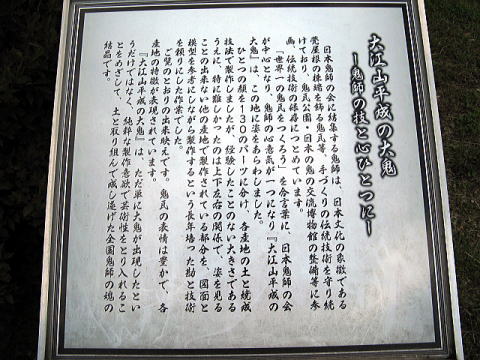 大江山平成の大鬼
―鬼師の技と心ひとつに―
日本鬼師の会に結集する鬼師は、日本文化の象徴である
甍屋根の棟端を飾る鬼瓦等、手づくりの伝統技術を守り続
けており、鬼瓦公園・日本の鬼の交流博物館の整備等に参
画、伝統技術の保存につとめています。
「世界一の鬼瓦をつくろう」を合言葉に、日本鬼師の会
が中心となり、鬼師の心意気が一つになり『大江山平成の
大鬼』は、この地に姿をあらわしました。
ひとつの顔を130のパーツに分け、各産地の土と焼成
技法で製作しましたが、経験したことのない大きさである
うえに、特に難しかったのは上下左右の関係で、姿を見る
ことの出来ない他の産地で製作されている部分を、図面と
模型を参考にしながら製作するという長年培った勘と技術
を頼りにした作業でした。
ご覧のとおりの出来映えです。鬼瓦の表情は豊かで、各
産地の特徴が表現されています。
『大江山平成の大鬼』は、ただ単に大鬼が出現したとい
うだけではなく、純粋な製作意欲で芸術性をとり入れるこ
とをめざして、土と取り組んで成し遂げた全国鬼師の魂の
結晶です。